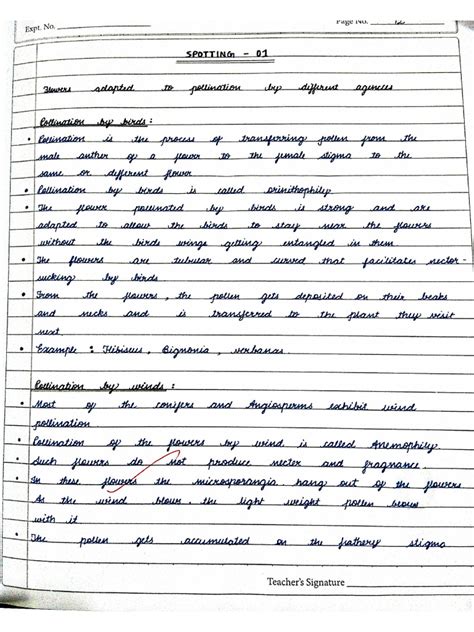 Expt. No.
Page No. 12
SPOTTING - 01
Flowers adapted to pollination by different agencies
Pollination by birds :
• Pollination is the process of transferring pollen from the
male anther of a flower to the female stigma to the
same or different flower
• Pollination by birds is called orinithophily
• The flower pollinated by birds is strong and are
adapted to allow the birds to stay near the flowers
without the birds wings getting entangled in them
• The flowers are tubular and curved that facilitates nector-
sucking by birds.
• From the flowers, the pollen gets deposited on their beaks
and necks and is transferred to the plant they visit
next
• Example : Hibiscus, Bignonia, verbanas.
Pollination by winds :
• Most of the conifers and Angiosperms exhibit wind
pollination
• Pollination of the flowers by wind is called Anemophily.
• Such flowers do not produce necter and fragnance.
• In these flowers the microsporangia hang out of the flowers
As the wind blows, the light weight pollen blows
with it
• The pollen gets accumulated on the fathery stigma
Teacher's Signature